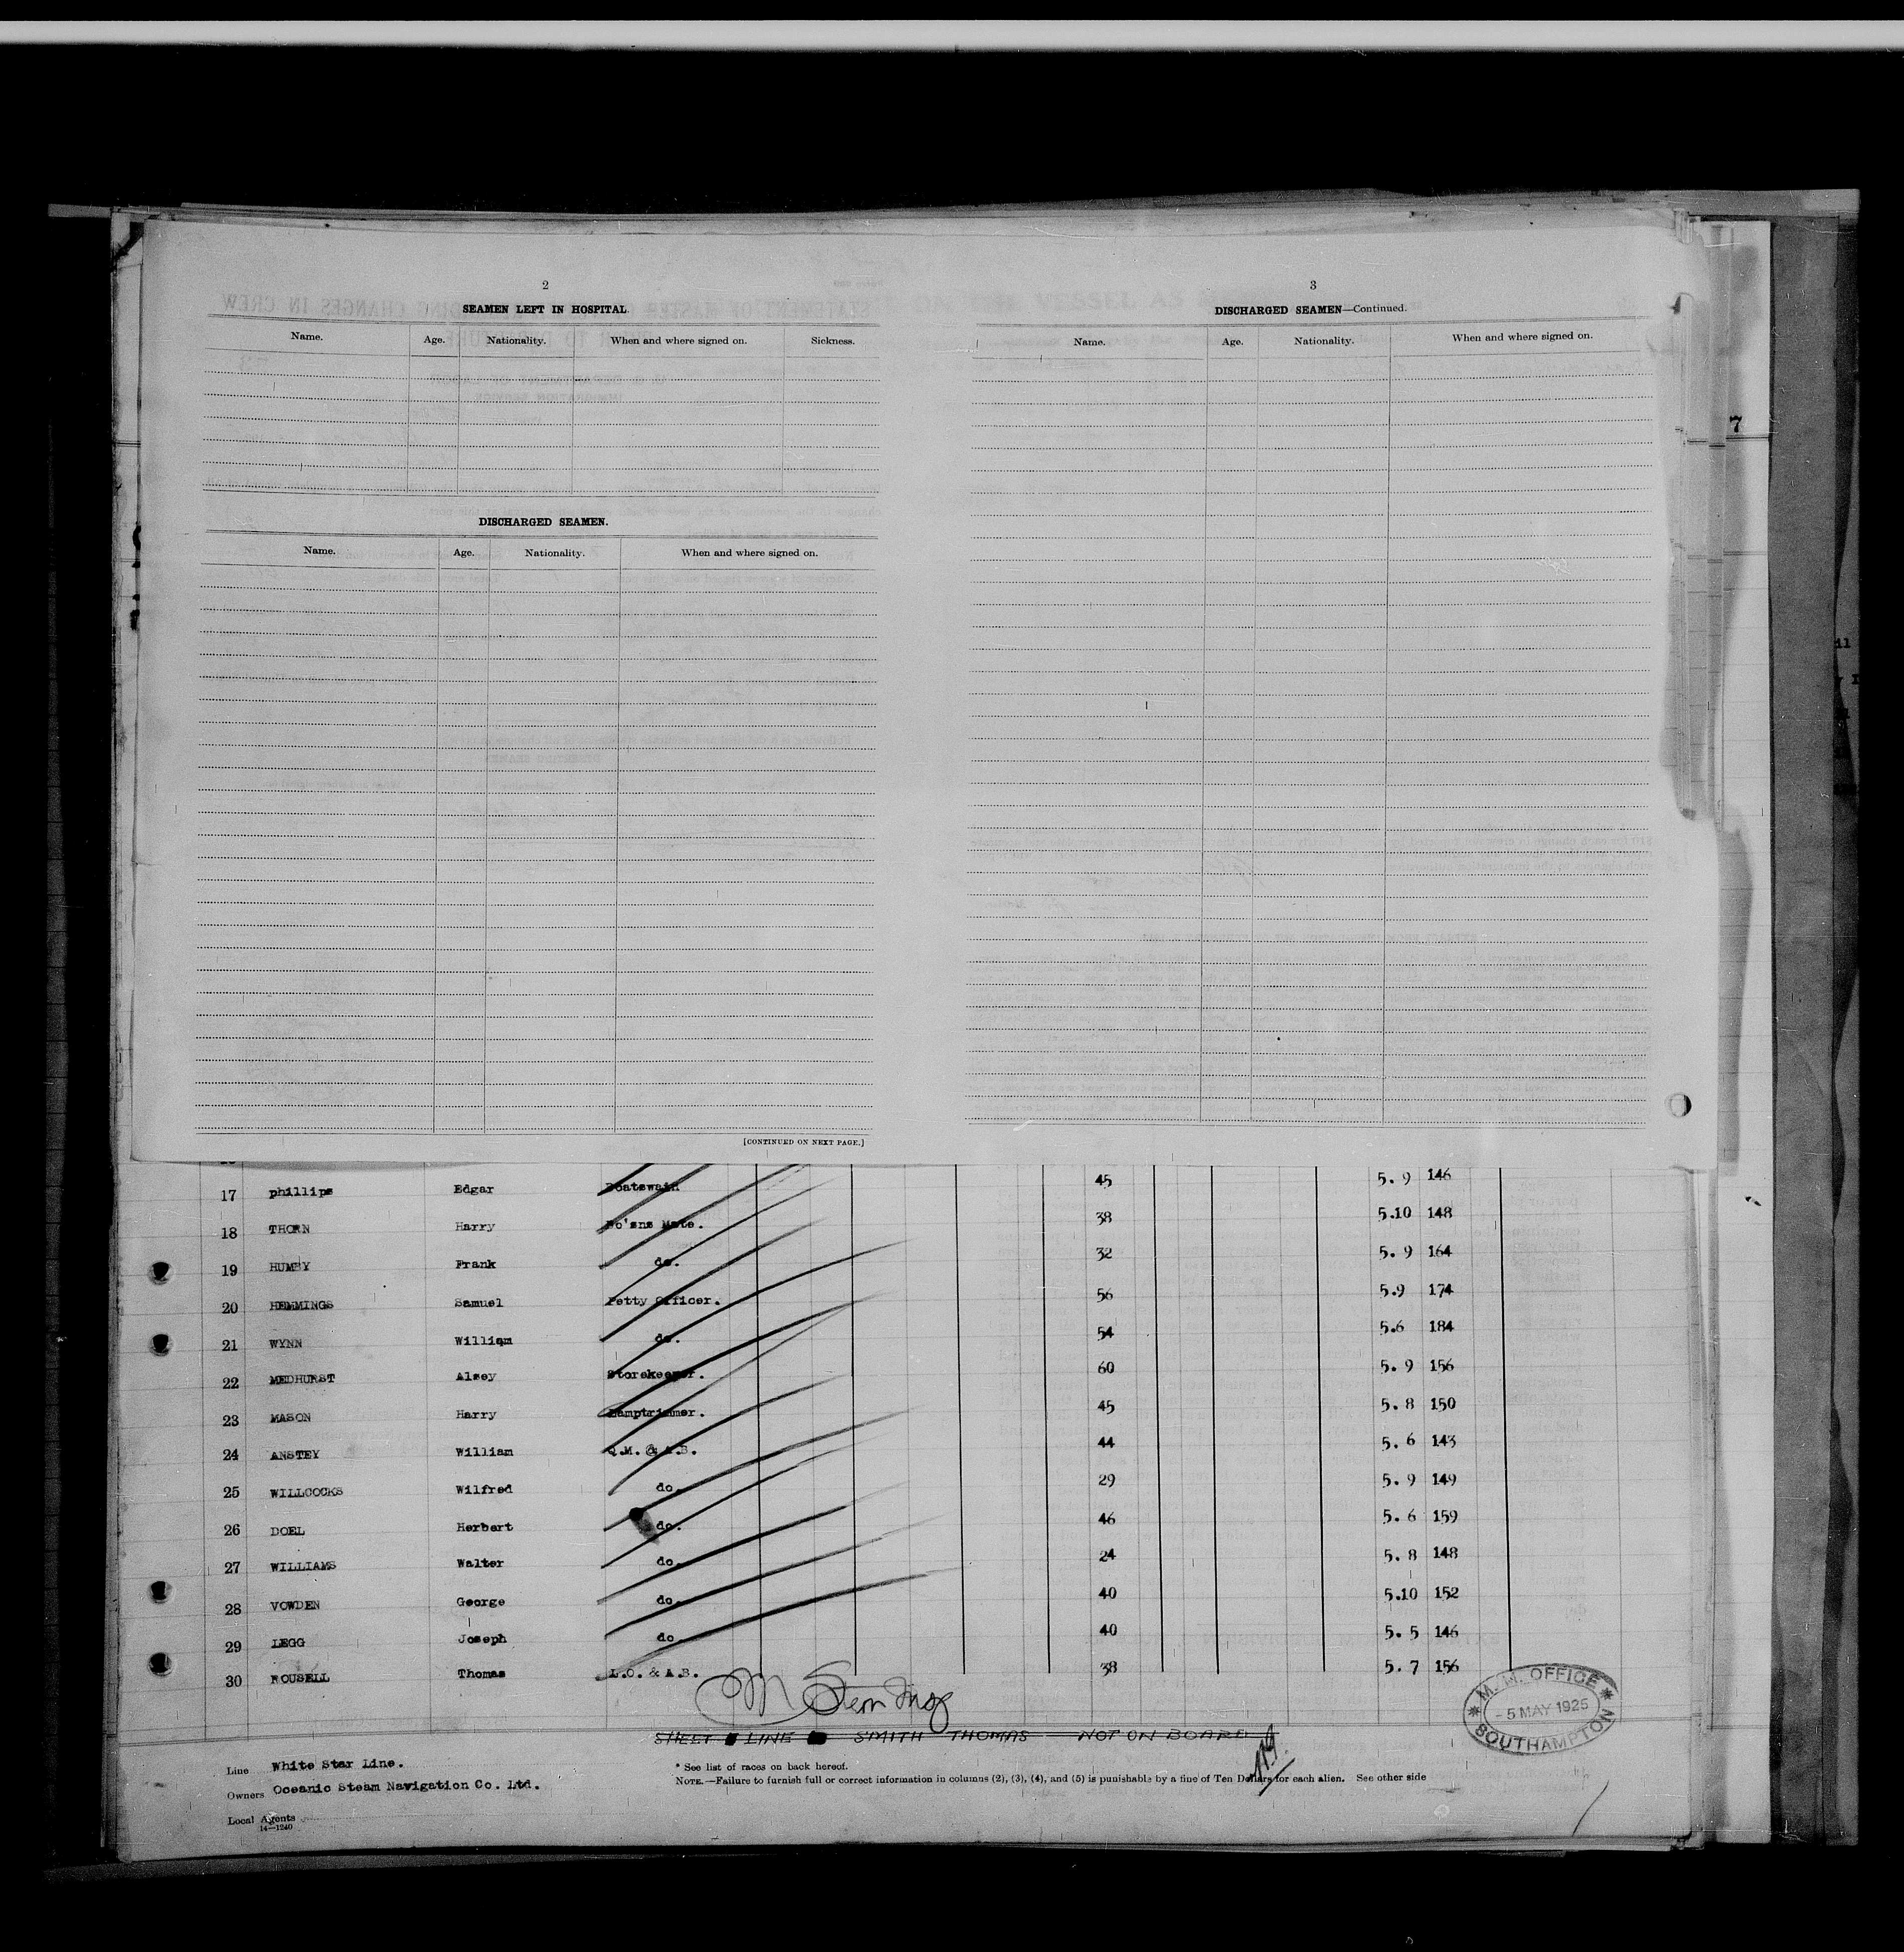 2
SEAMEN LEFT IN HOSPITAL
Name. Age. Nationality. When and where signed on. Sickness.
DISCHARGED SEAMEN.
Name. Age. Nationality. When and where signed on.
[CONTINUED ON NEXT PAGE.]
3
DISCHARGED SEAMEN—Continued.
Name. Age. Nationality. When and where signed on.
7
17 phillips Edgar Boatswain 45 5. 9 146
18 THORN Harry Bo'sns Mate. 38 5.10 148
19 HUMBY Frank do. 32 5. 9 164
20 HEMMINGS Samuel Petty Officer. 56 5.9 174
21 WYNN William do. 54 5.6 184
22 MEDHURST Alsey Storekeeper. 60 5. 9 156
23 MASON Harry Lamptrimmer. 45 5. 8 150
24 ANSTEY William Q.M. & A.B. 44 5. 6 143
25 WILLCOCKS Wilfred do. 29 5. 9 149
26 DOEL Herbert do. 46 5. 6 159
27 WILLIAMS Walter do. 24 5. 8 148
28 VOWDEN George do. 40 5.10 152
29 LEGG Joseph do 40 5. 5 146
30 ROUSELL Thomas L.O. & A.B. 38 5. 7 156
SHEET LINE SMITH THOMAS NOT ON BOARD
M. M. OFFICE
- 5 MAY 1925
SOUTHAMPTON
Line White Star Line.
Owners Oceanic Steam Navigation Co. Ltd.
Local Agents
14—1240
* See list of races on back hereof.
NOTE.—Failure to furnish full or correct information in columns (2), (3), (4), and (5) is punishable by a fine of Ten Dollars for each alien. See other side